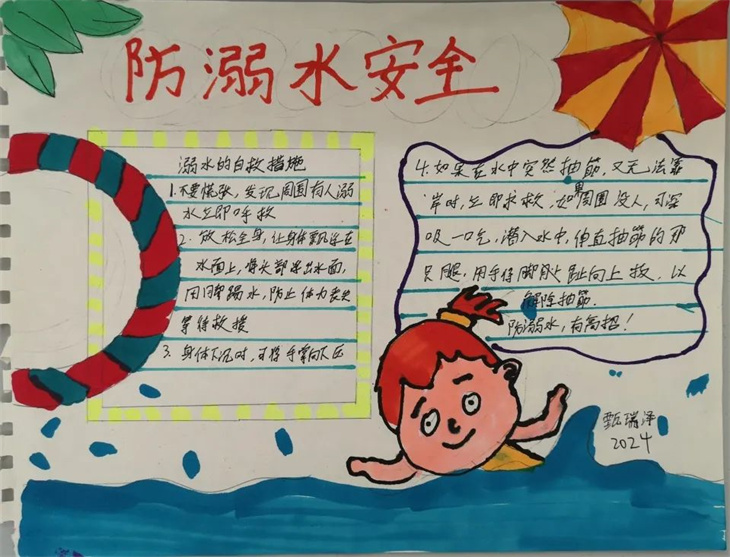 防溺水安全
溺水的自救措施
1.不要慌张，发现周围有人溺
水立即呼救
2.放松全身，让身体飘浮在
水面上，将头部浮出水面，
用脚踢水，防止体力丧失
等待救援
3.身体下沉时，可将手掌向下压
4.如果在水中突然抽筋，又无法靠
岸时，立即求救，如果周围没人，可深
吸一口气，潜入水中，伸直抽筋的那
只腿，用手将脚趾向上扳，以
解除抽筋.
防溺水，有高招！
甄瑞泽
2024